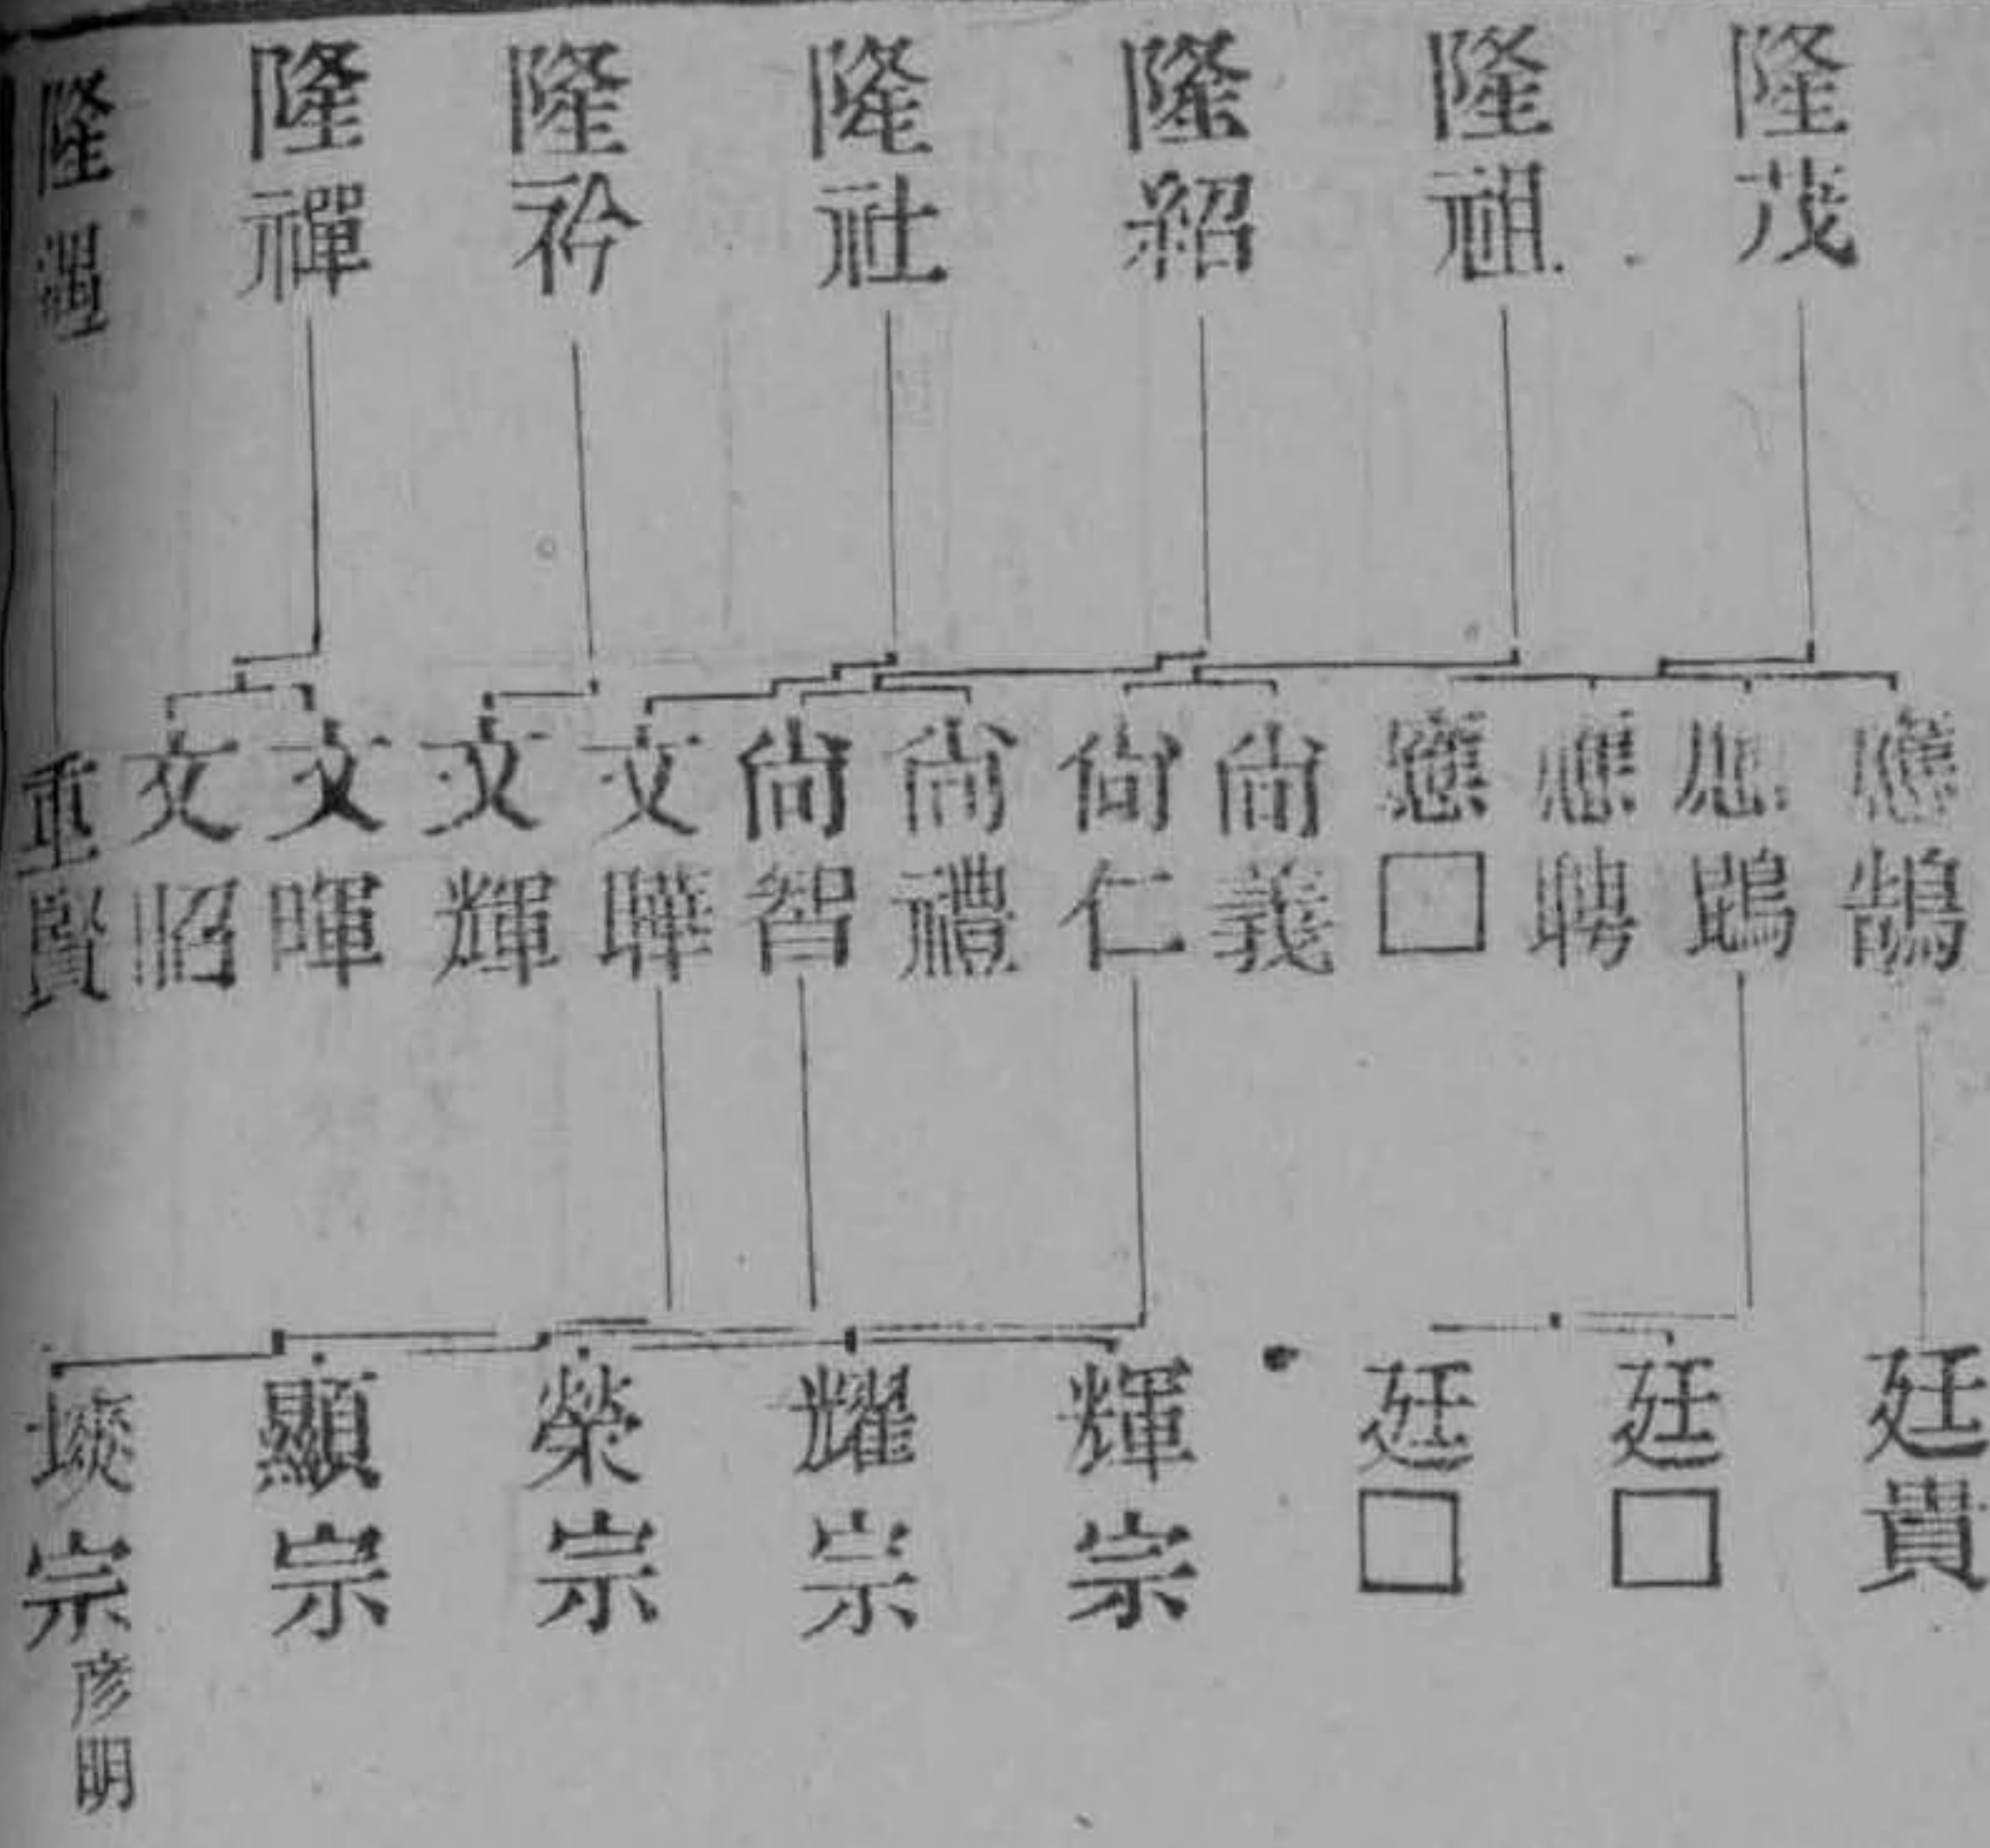 隆茂
隆祖
隆紹
隆社
隆衿
隆禪
隆
應鵠
應鵾
應聘
應□
尚義
尚仁
尚禮
尚智
文曄
文輝
文暉
文昭
重賢
廷貴
廷□
廷□
輝宗
耀宗
榮宗
顯宗
宗彦明